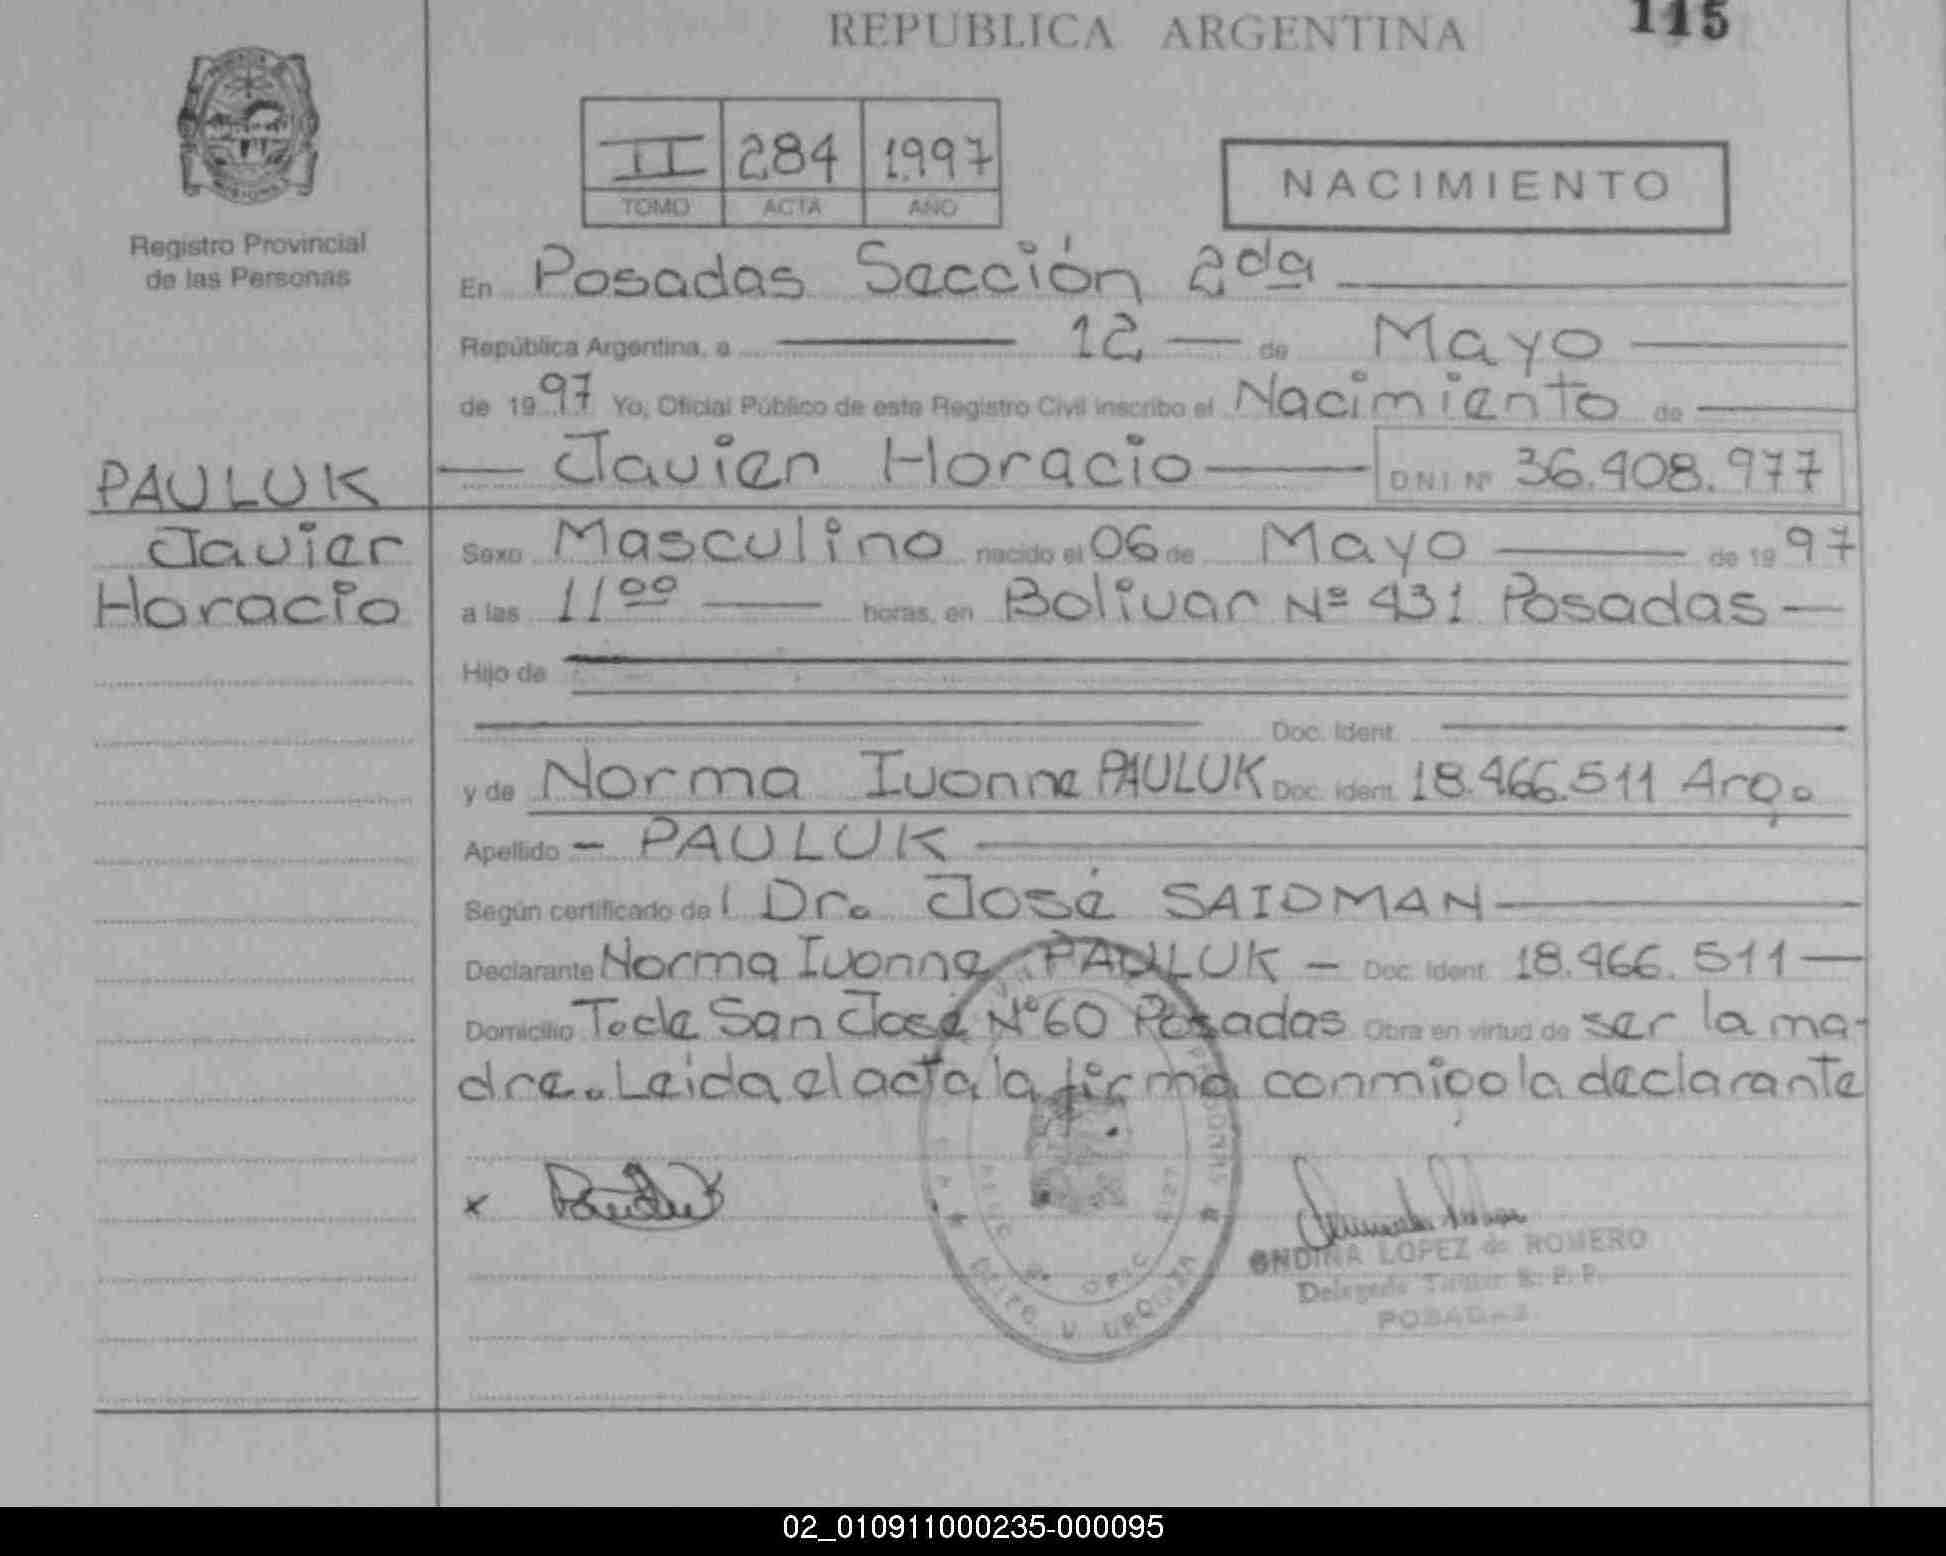 REPUBLICA ARGENTINA 115
II 284 1997
TOMO ACTA AÑO
NACIMIENTO
Registro Provincial
de las Personas
En Posadas Sección 2da
República Argentina, a 12 de Mayo
de 1997 Yo, Oficial Público de este Registro Civil inscribo el Nacimiento de
Javier Horacio DNI Nº 36.408.977
PAULUK
Javier
Horacio
Sexo Masculino nacido el 06 de Mayo de 1997
a las 11 00 horas, en Bolivar Nº 431 Posadas
Hijo de
Doc. Ident.
y de Norma Ivonne PAULUK Doc. Ident. 18.466.511 Arg.
Apellido - PAULUK
Según certificado de l Dr. José SAIDMAN
Declarante Norma Ivonne PAULUK - Doc. Ident. 18.466.511
Domicilio San José Nº 60 Posadas Obra en virtud de ser la ma-
dre. Leida el acta la firma conmigo la declarante
x
ONDINA LOPEZ de ROMERO
Delegada Titular R. P. P.
POSADAS
02_010911000235-000095